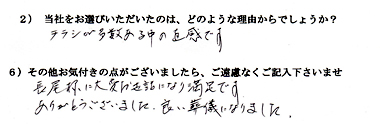 2） 当社をお選びいただいたのは、どのような理由からでしょうか？
チラシが多数ある中の直感です
6）その他お気付きの点がございましたら、ご遠慮なくご記入下さいませ
長尾様に大変お世話になり満足です
ありがとうございました。良い葬儀になりました。